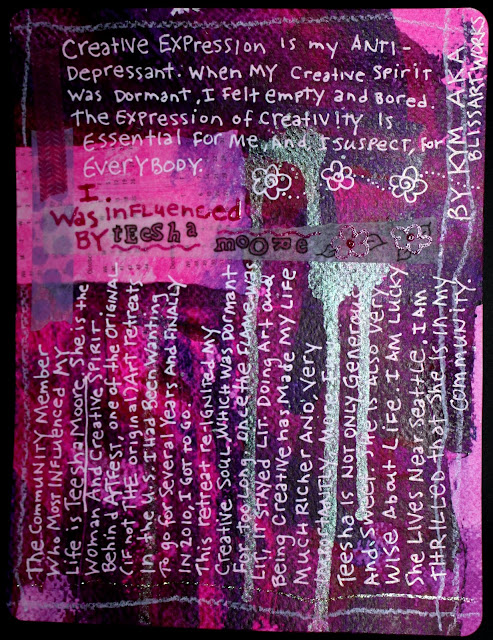 Creative Expression is my Anti-
Depressant. When my creative spirit
was dormant, I felt empty and bored.
The expression of creativity is
essential for me, and, I suspect, for
everybody.
BY KYM AKA
BLISSARTWORKS
I.
Was influenced
BY teesha
moore
The Community Member
Who Most Influenced My
Life is Teesha Moore. She is the
Woman And Creative Spirit
Behind Artfest, one of the original
(if not THE original) Art Retreats
in the U.S. I Had Been Wanting
to go for Several Years And Finally
in 2010, I got to go.
This retreat re-ignited my
Creative Soul which was Dormant
For too Long. Once the Flame was
Lit, it stayed Lit. Doing Art and
Being Creative has Made My Life
Much Richer And, very
Teesha is Not only Generous
And Sweet, she is also very
Wise About Life. I am Lucky
She Lives Near Seattle. I am
Thrilled that she is in my
community.